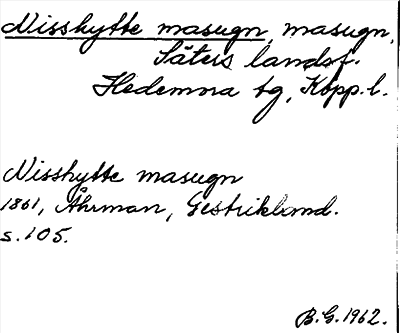 Nisshytte masugn, masugn,
Säters landsf.
Hedemora tg, Kopp. l.
Nisshytte masugn
1861, Åhrman, Gestrikland.
s. 105.
B.G. 1962.